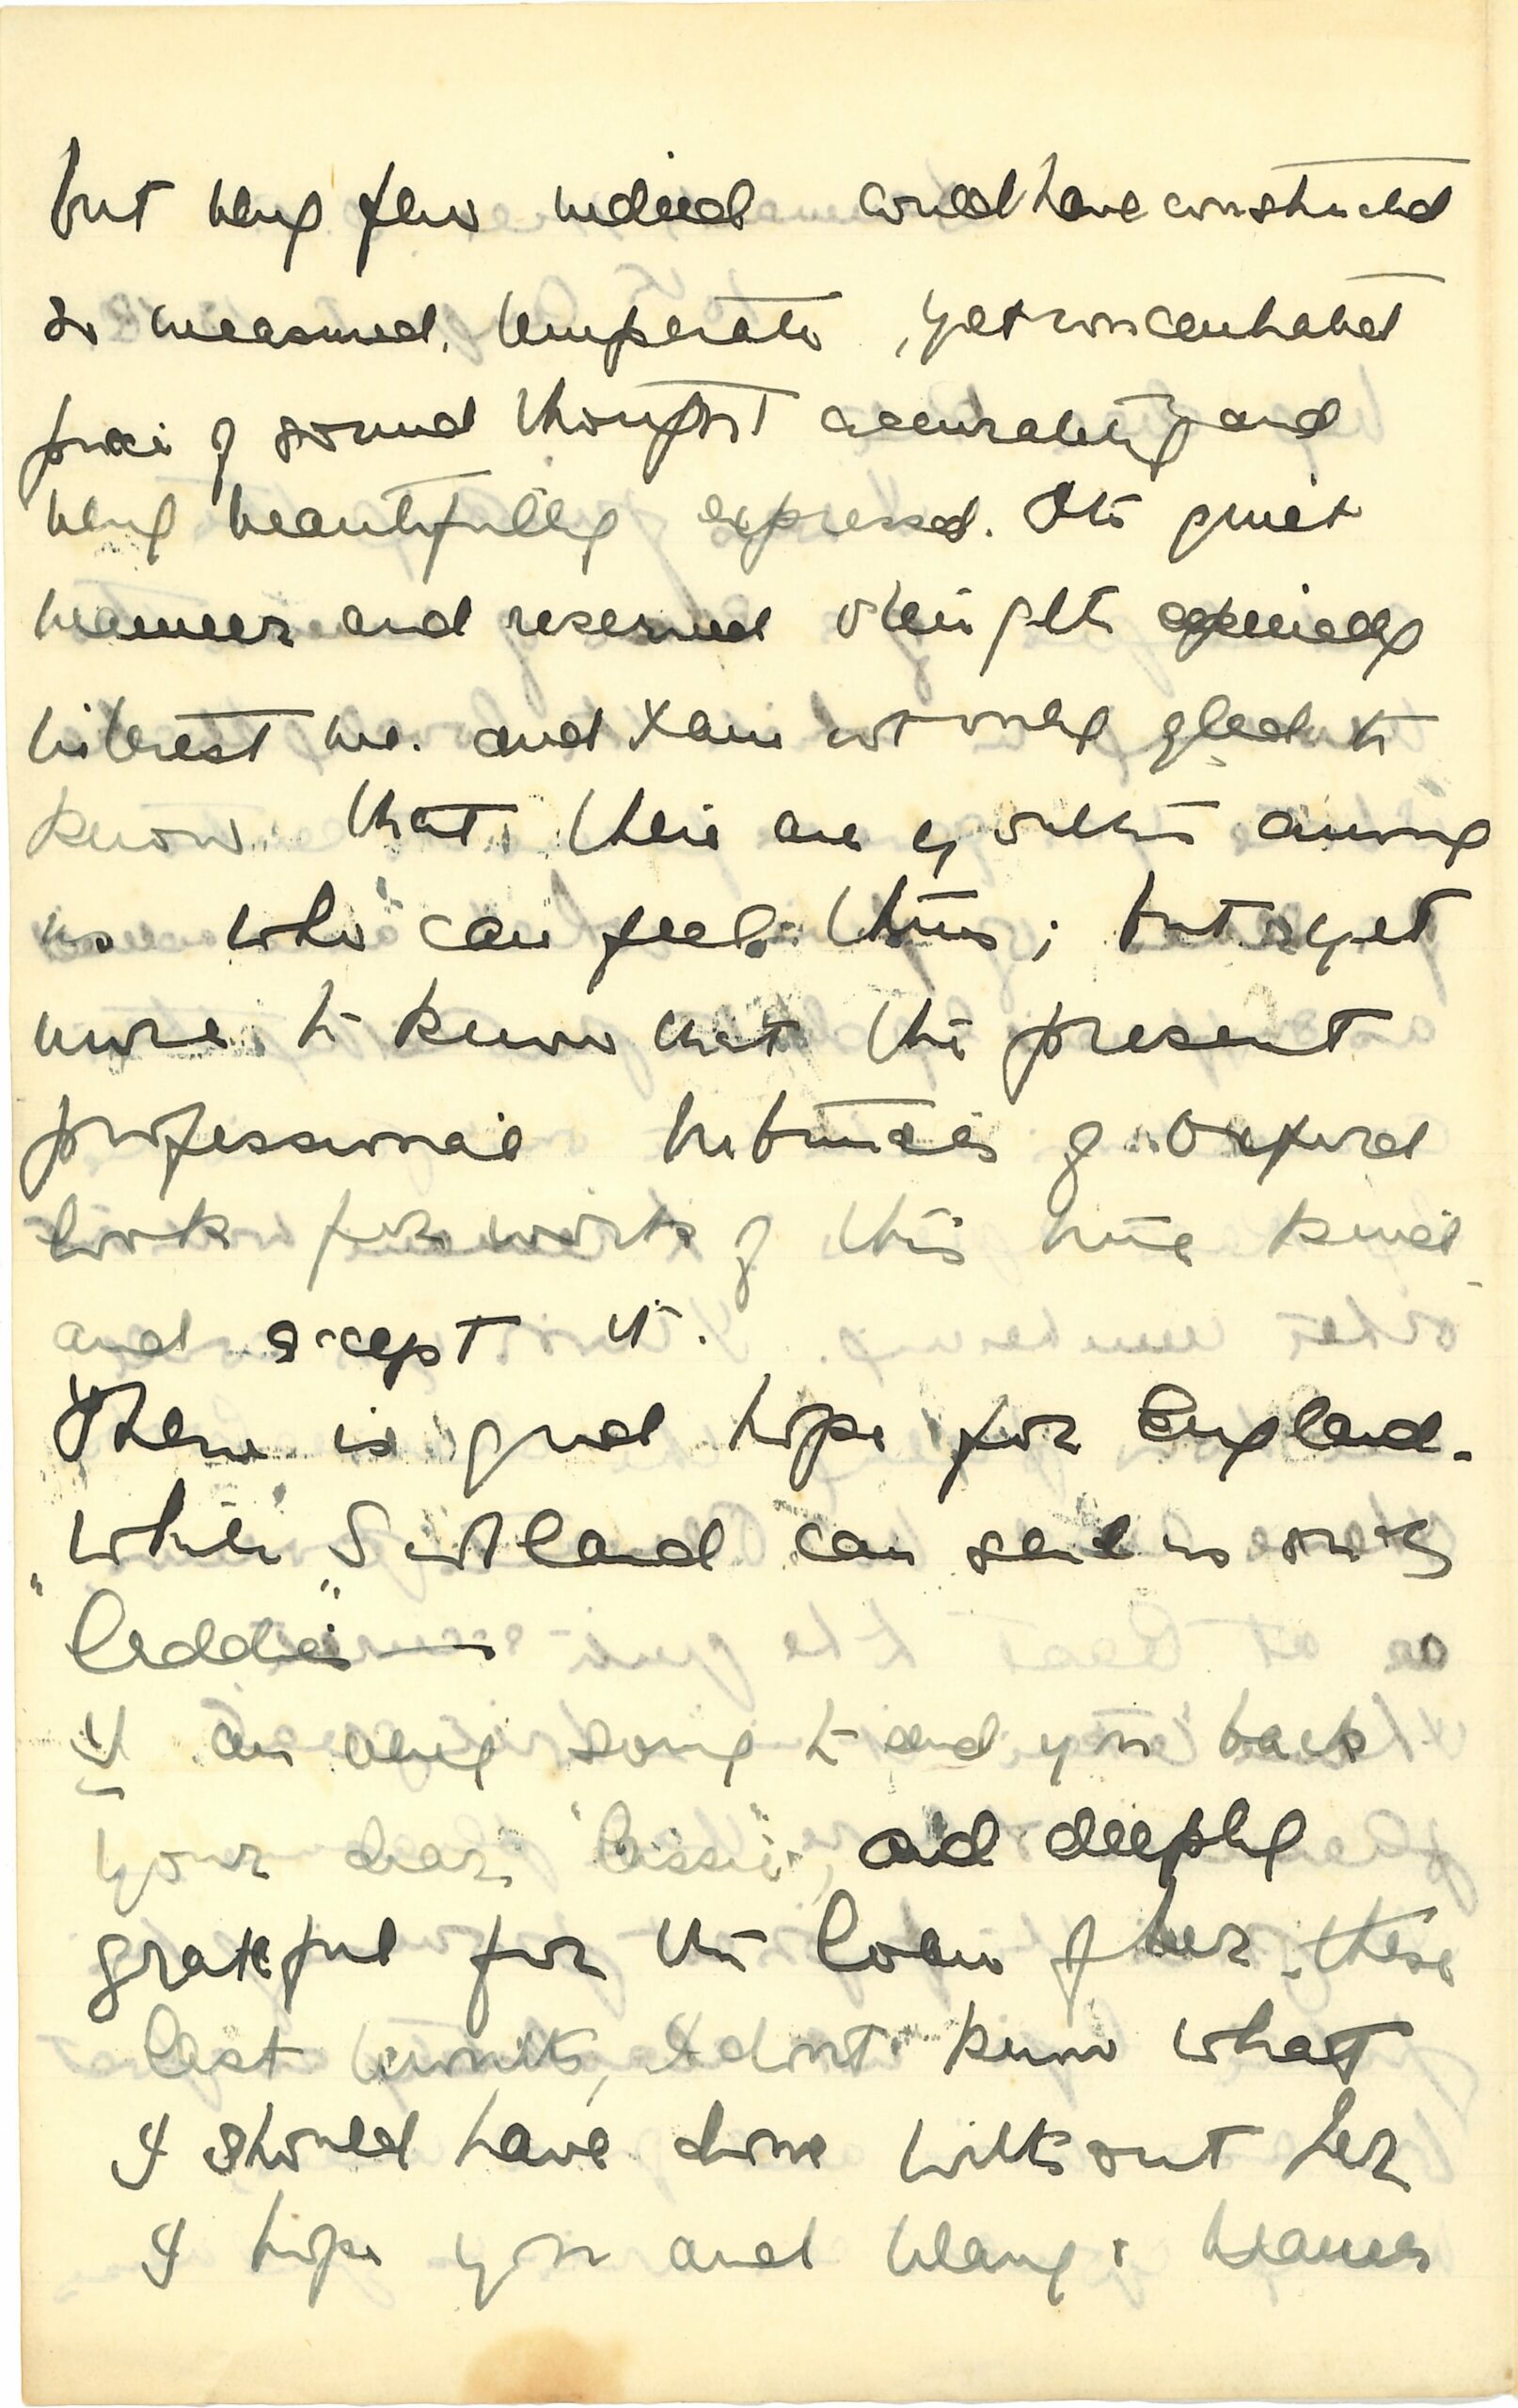 but very few indeed could have constructed
so measured, temperate, yet concentrated
piece of sound thought accurately and
very beautifully expressed. Its quiet
manner and reserved strength especially
interest me. and I am not only glad to
know that there are youths among
us who can feel thus; but yet
more to know that the present
professional of Oxford
look for work of this true kind
and accept it.
There is good hope for England.
while Scotland can send us only
"Laddies"
I am very sorry to send you back
your dear "lassie", and deeply
grateful for the loan of her these
last months, I don't know what
I should have done without her
I hope you and Mary &